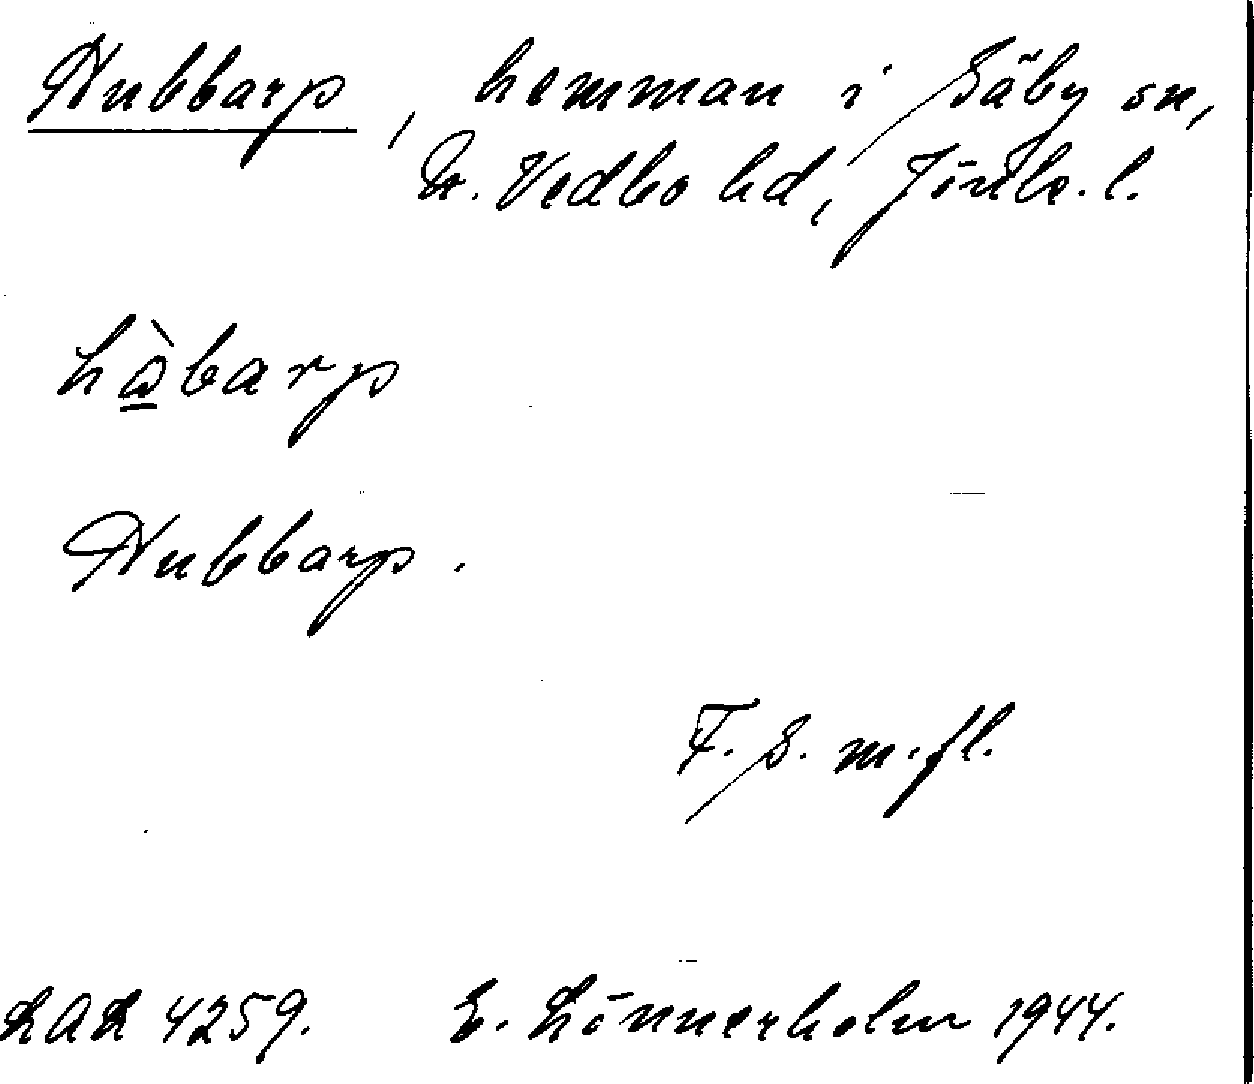 Hubbarp, hemman i Säby sn,
N. Vedbo hd, Jönk. l.
hὼbarp
Hubbarp.
F. S. m. fl.
LAL 4259. E. Lönnerholm 1944.